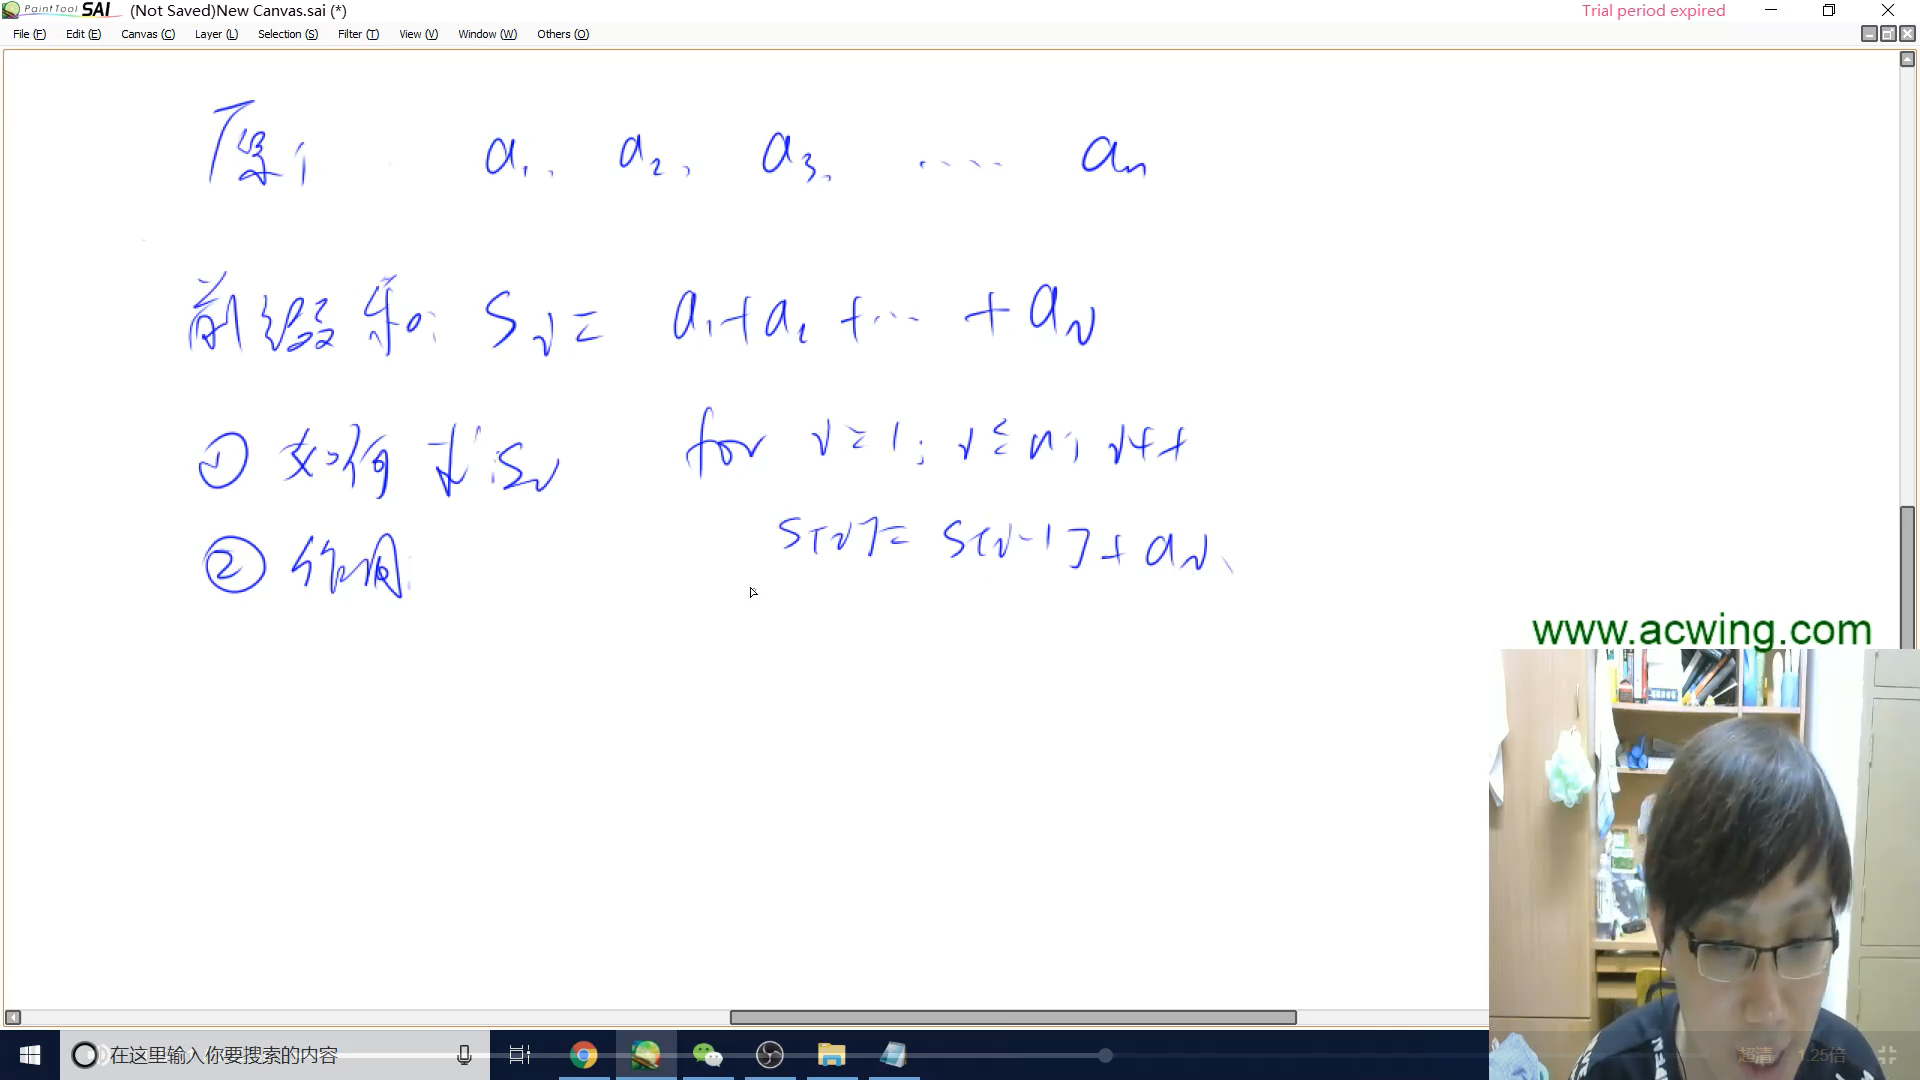 PaintTool SAI (Not Saved)New Canvas.sai (*) Trial period expired
File (F) Edit (E) Canvas (C) Layer (L) Selection (S) Filter (T) View (V) Window (W) Others (O)
a₁, a₂, a₃, ..... aₙ
前缀和: Sᵢ = a₁+a₂ +... + aᵢ
① 如何求Sᵢ for i=1; i≤n; i++
S[i]= S[i-1]+aᵢ
② 作用
www.acwing.com
在这里输入你要搜索的内容
超清 1.25倍